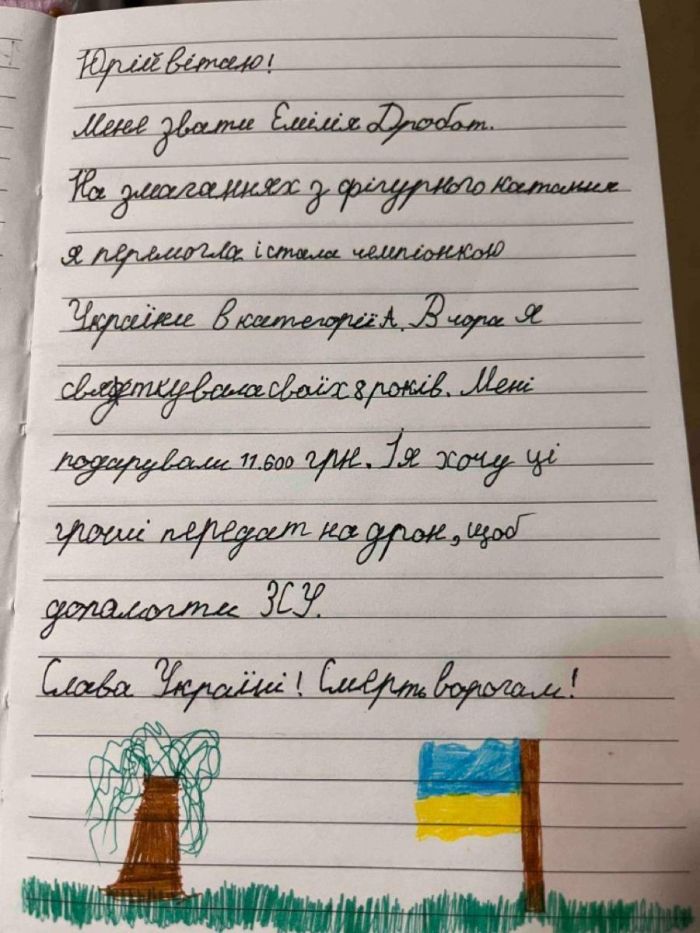 Юрій вітаю!
Мене звати Емілія Дробот.
На змаганнях з фігурного катання
я перемогла і стала чемпіонкою
України в категорії А. Вчора я
святкувала своїх 8 років. Мені
подарували 11.600 грн. І я хочу ці
гроші передат на дрон, щоб
допомогти ЗСУ.
Слава Україні! Смерть ворогам!